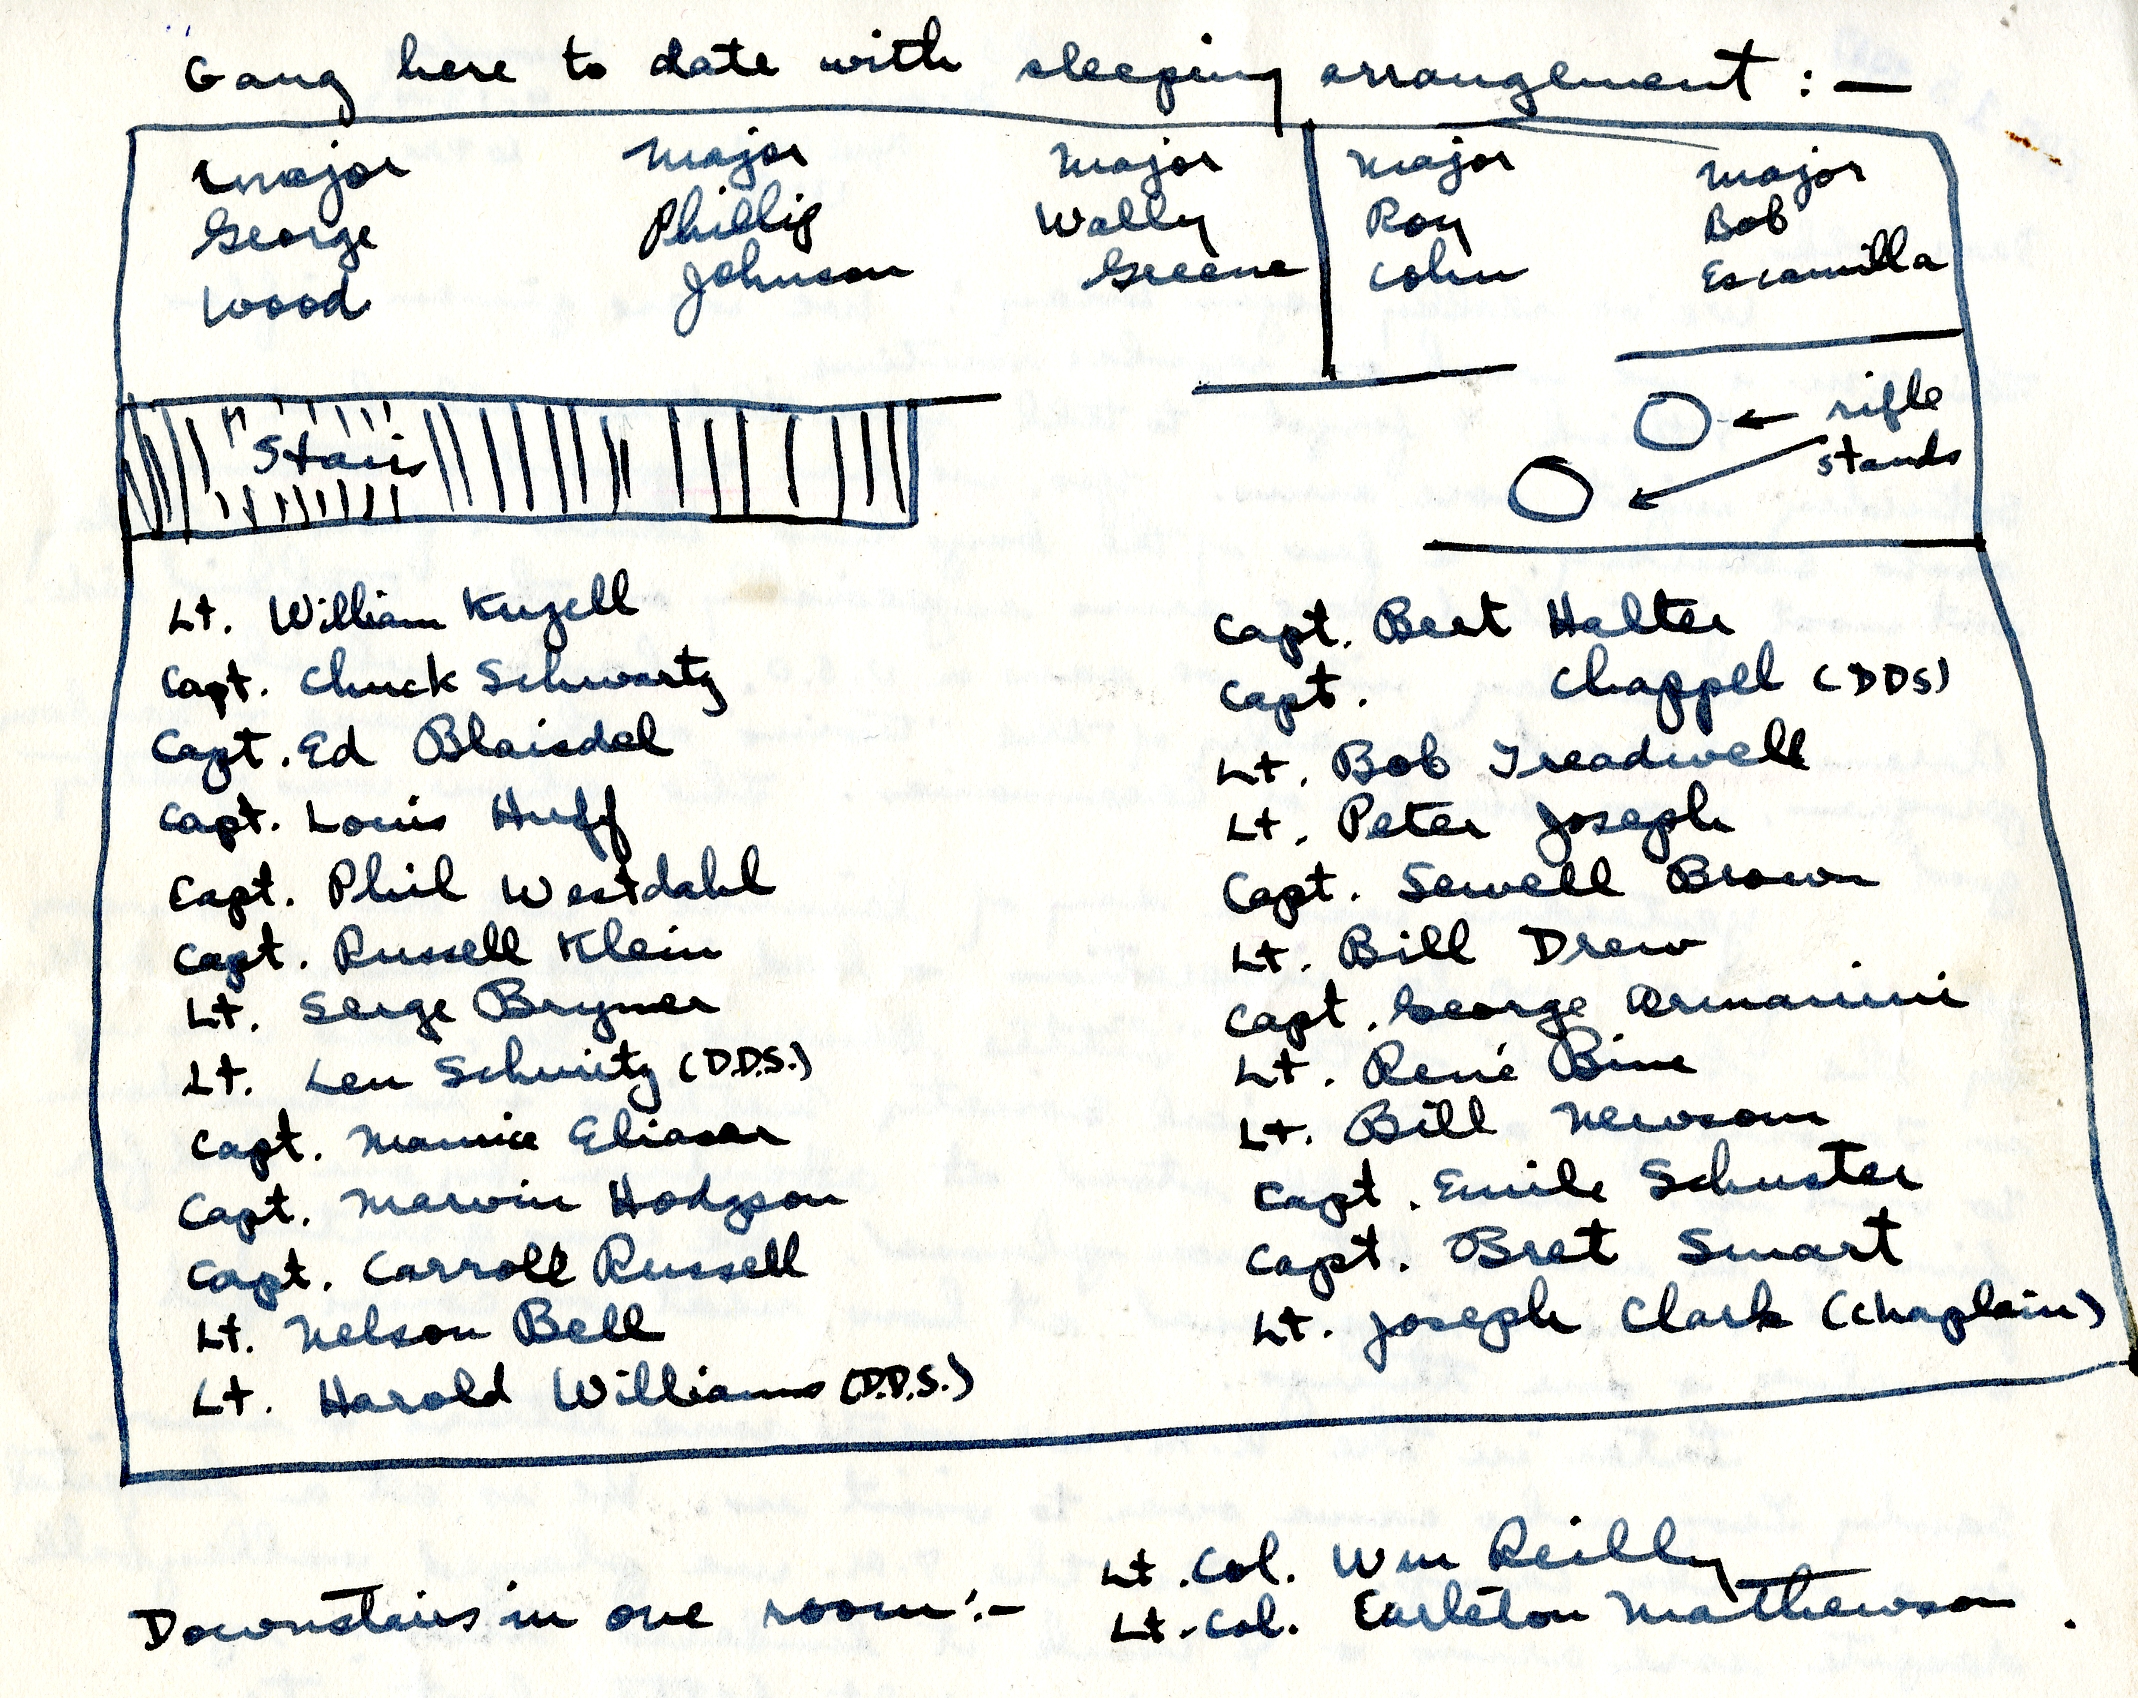 Gang here to date with sleeping arrangement :—
Major
George
Wood
Major
Phillip
Johnson
Major
Wally
Greene
Major
Roy
Cohn
Major
Bob
Escamilla
Stairs
rifle
stands
Lt. William Kuzell
Capt. Chuck Schwartz
Capt. Ed Blaisdel
Capt. Louis Huff
Capt. Phil Westdahl
Capt. Russell Klein
Lt. Serge Brymer
Lt. Len Schmitz (D.D.S.)
Capt. Maurice Eliaser
Capt. Marvin Hodgson
Capt. Carroll Russell
Lt. Nelson Bell
Lt. Harold Williams (D.D.S.)
Capt. Bert Halter
Capt. Chappel (DDS)
Lt. Bob Treadwell
Lt. Peter Joseph
Capt. Sewell Brown
Lt. Bill Drew
Capt. George Armanini
Lt. René Bine
Lt. Bill Newsom
Capt. Emile Schuster
Capt. Bret Smart
Lt. Joseph Clark (Chaplain)
Downstairs in one room :-
Lt. Col. Wm Reilly
Lt. Col. Earleton Mathewson.